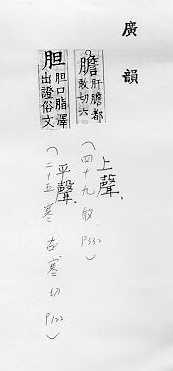 廣韻
膽 肝膽都
敢切六
上聲、
(四十九敢 P332)
胆 胆口脂澤
出證俗文
平聲、
(二十五寒 古寒切 P122)